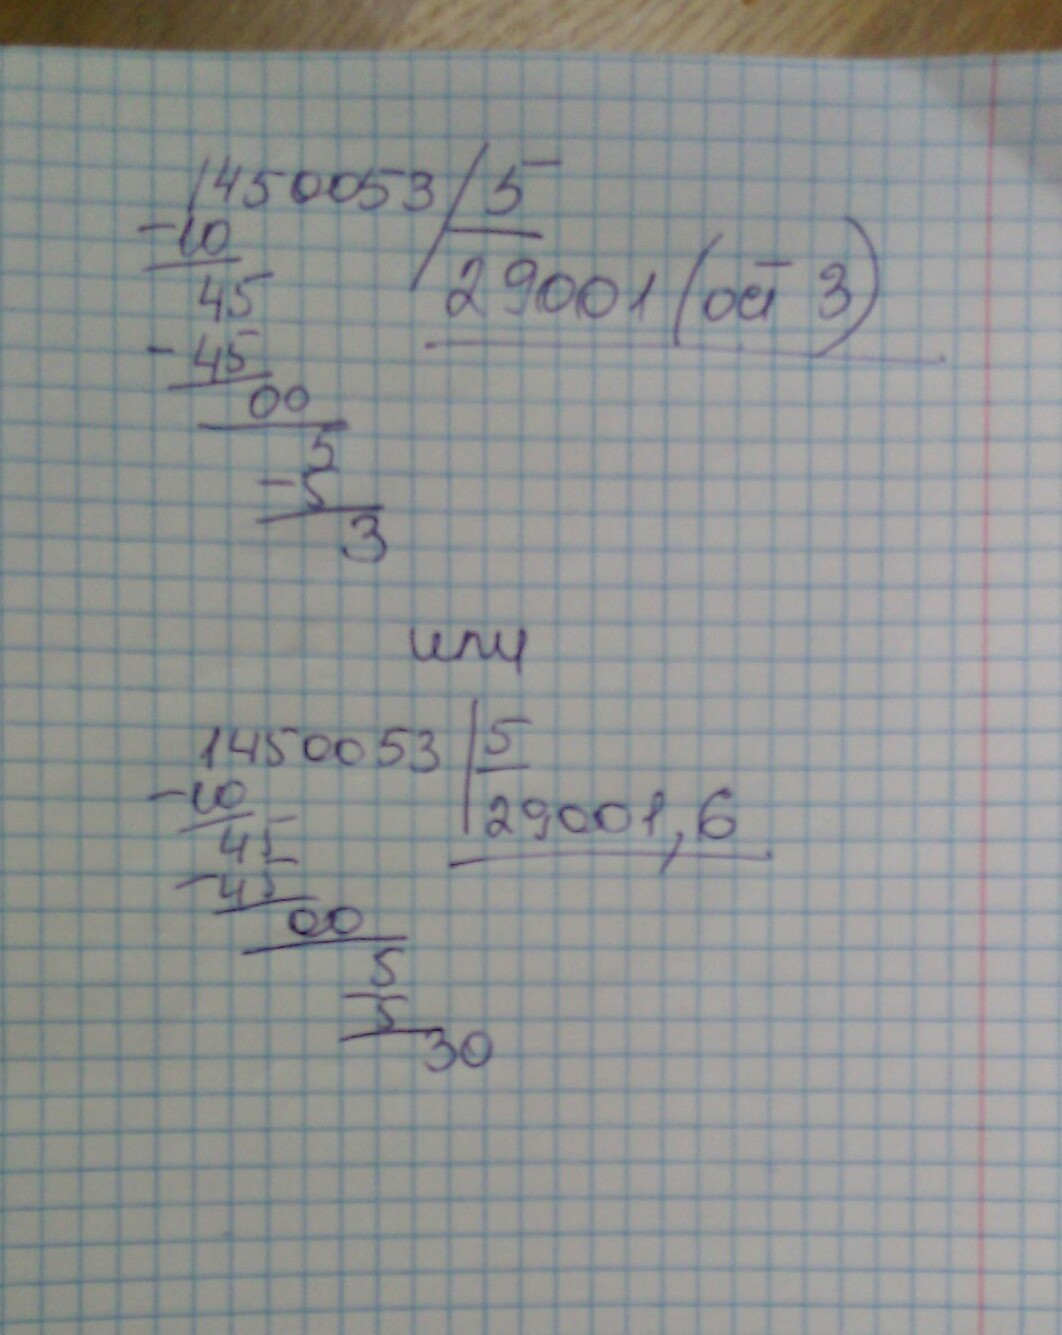 1450053 5
-10
29001 (ост 3)
45
-45
00
5
-5
3
или
1450053 5
-10
29001,6
45
-45
00
5
-5
30